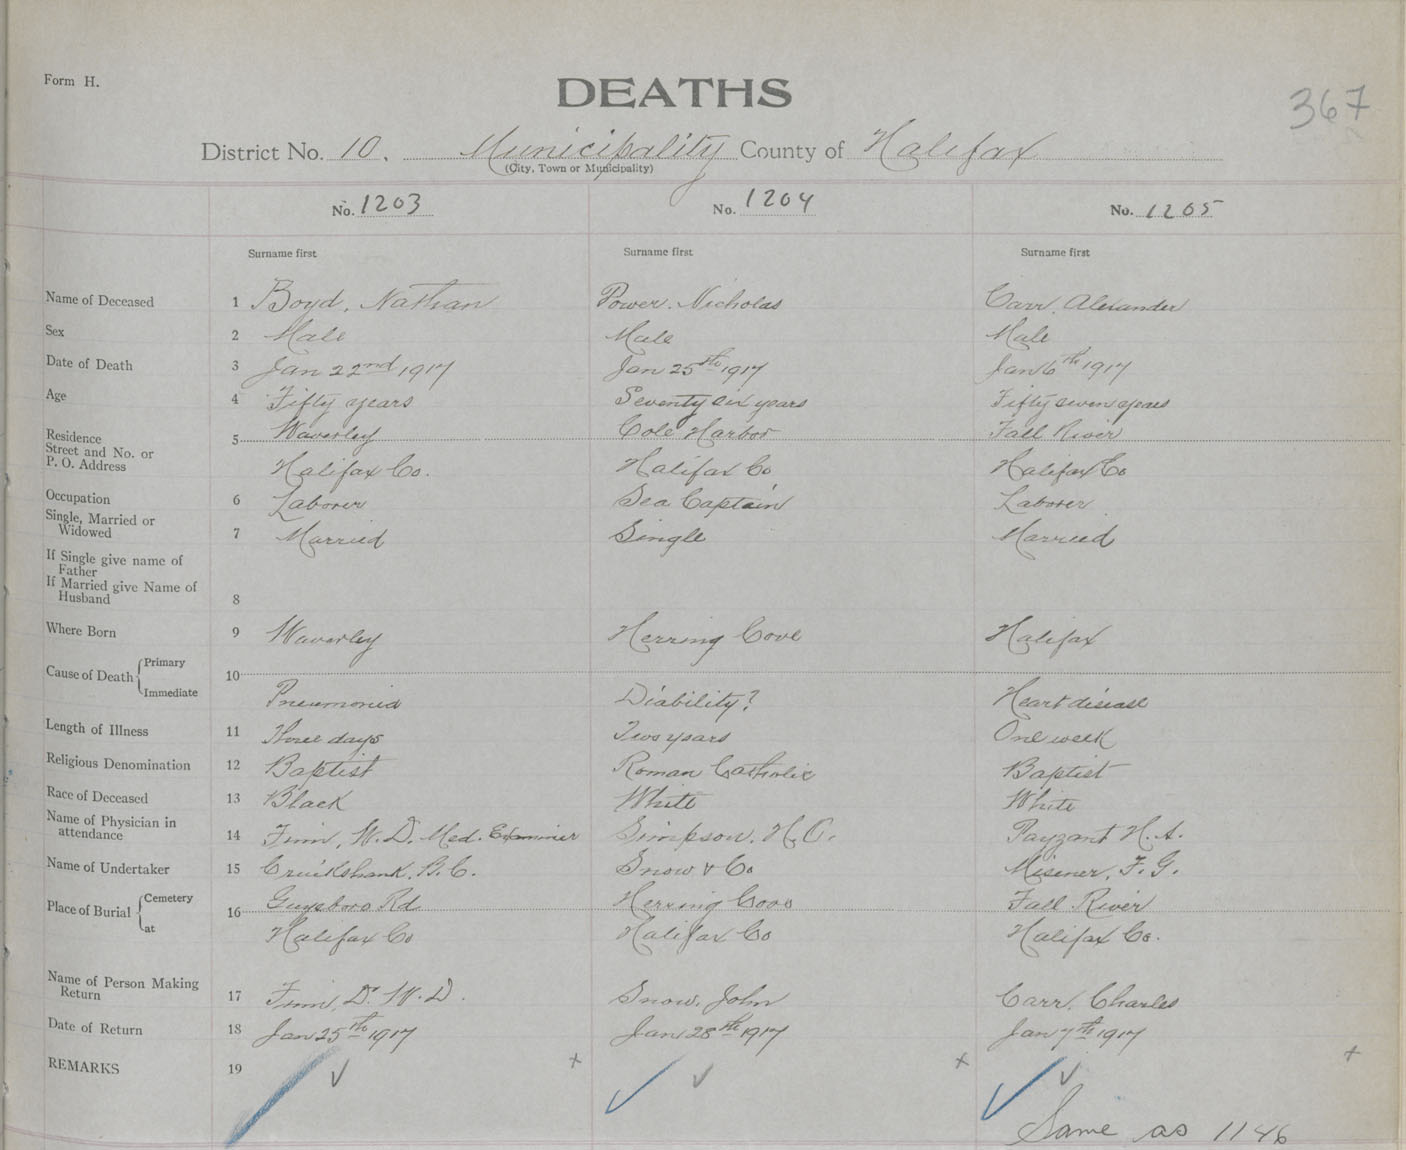 Form H.
DEATHS
367
District No. 10. Municipality County of Halifax
(City, Town or Municipality)
No. 1203 No. 1204 No. 1205
Surname first Surname first Surname first
Name of Deceased 1 Boyd, Nathan Power. Nicholas Carr, Alexander
Sex 2 Male Male Male
Date of Death 3 Jan 22nd 1917 Jan 25th 1917 Jan 6th 1917
Age 4 Fifty years Seventy six years Fifty seven years
Residence 5 Waverley Cole Harbor Fall River
Street and No. or
P. O. Address Halifax Co. Halifax Co Halifax Co
Occupation 6 Laborer Sea Captain Laborer
Single, Married or
Widowed 7 Married Single Married
If Single give name of
Father
If Married give Name of
Husband 8
Where Born 9 Waverley Herring Cove Halifax
Cause of Death Primary 10
Immediate Pneumonia Diability? Heart disease
Length of Illness 11 Three days Two years One week
Religious Denomination 12 Baptist Roman Catholic Baptist
Race of Deceased 13 Black White White
Name of Physician in
attendance 14 Finn, W. D. Med. Examiner Simpson, H. C. Payzant H. A.
Name of Undertaker 15 Cruikshank, B. C. Snow & Co Misener, F. G.
Place of Burial Cemetery 16 Guysboro Rd Herring Cove Fall River
at Halifax Co Halifax Co Halifax Co.
Name of Person Making
Return 17 Finn, Dr W. D. Snow, John Carr, Charles
Date of Return 18 Jan 25th 1917 Jan 28th 1917 Jan 7th 1917
REMARKS 19
Same as 1146